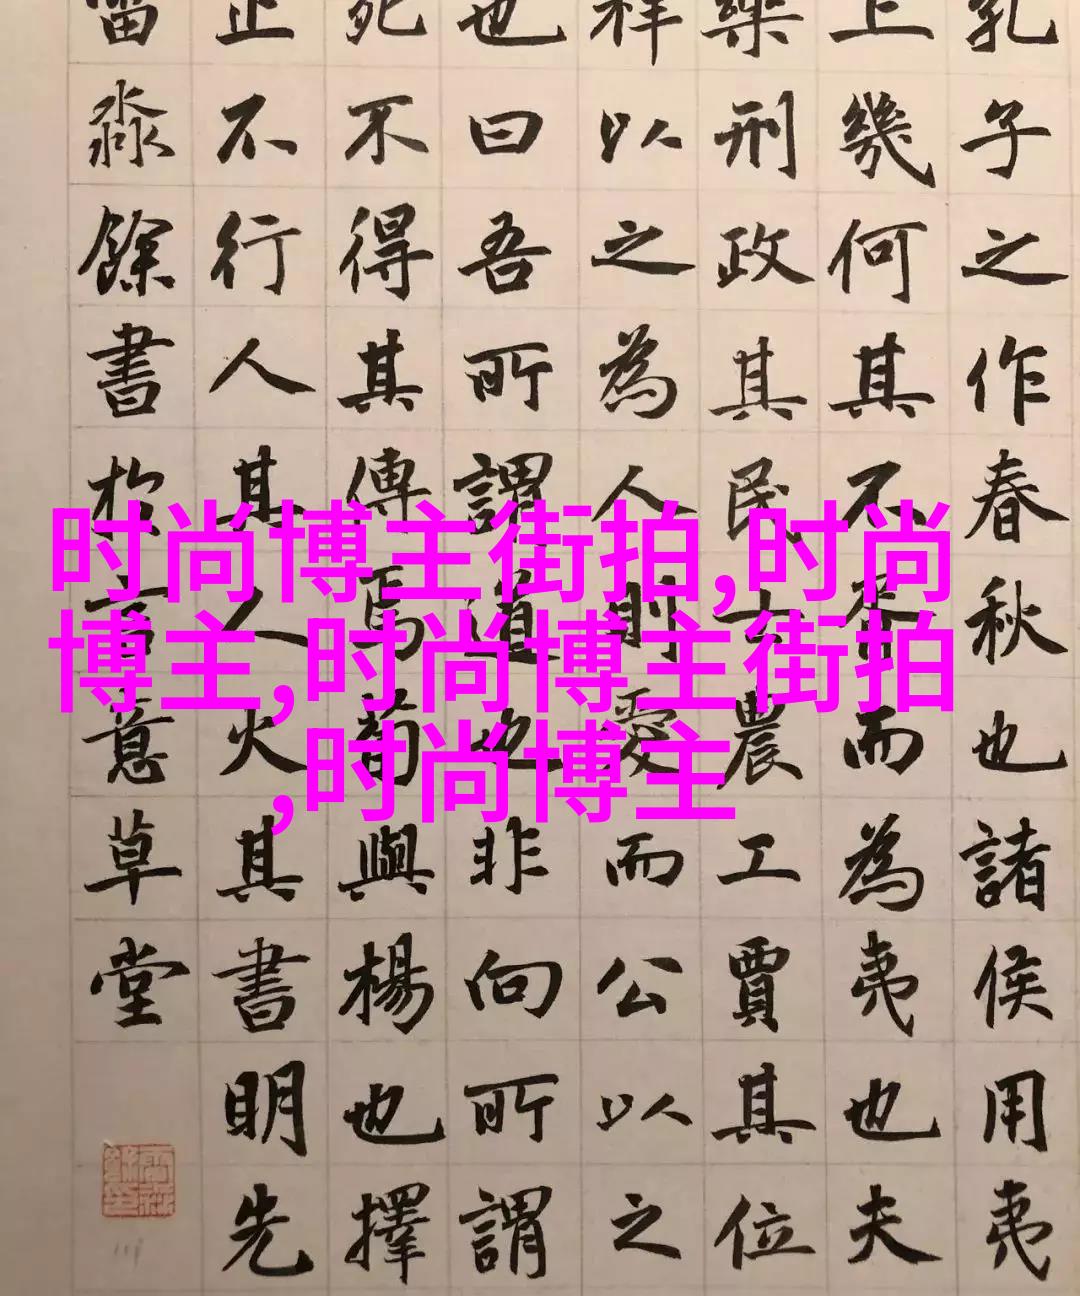 孔子之作春秋也諸侯用夷
上幾何其不胥而為夷也夫
樂刑政其民士農工賈其位
祥以之為人則愛而公以之
也曰吾所謂道也非向所謂
死不得其傳焉荀與楊也擇
止不行人其人火其書明先
淼餘書於言意草堂
时尚博主街拍,时尚
博主,时尚博主街拍
,时尚博主